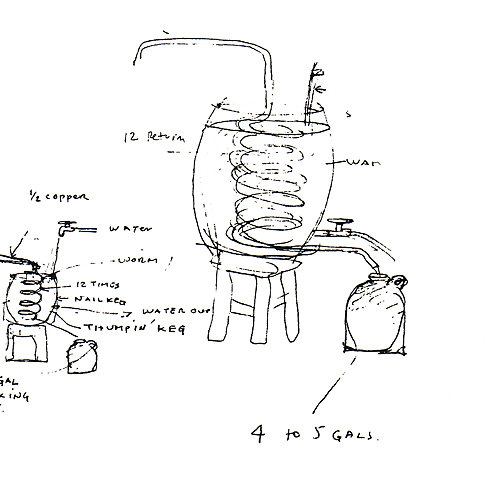 12 Return
WAT
1/2 COPPER
WATER
WORM
12 TIMES
NAIL KEG
WATER OUT
THUMPIN' KEG
GAL
KING
4 to 5 GALS.